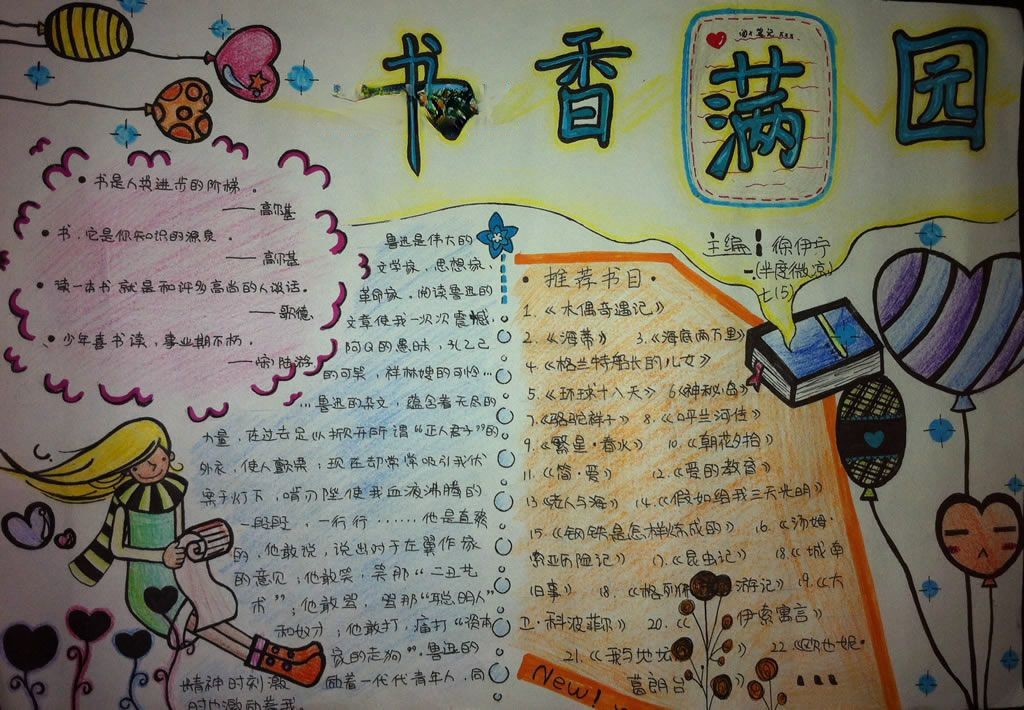 书香满园
书是人类进步的阶梯。
——高尔基
书，它是你知识的源泉。
——高尔基
读一本书就是和许多高尚的人谈话。
——歌德
少年喜书读，事业期不朽。
——(宋)陆游
主编：徐伊宁
(半度微凉)
七(5)
鲁迅是伟大的
文学家，思想家、
革命家。阅读鲁迅的
文章使我一次次震撼，
阿Q的愚昧，孔乙己
的可笑，祥林嫂的可怜…
…鲁迅的杂文，蕴含着无尽的
力量，在过去足以撕开所谓“正人君子”的
外衣，使人颤栗；现在却常常吸引我伏
案于灯下，
使我血液沸腾的
一段段，一行行……他是直率
的，他敢说，说出对于左翼作家
的意见；他敢笑，笑那“二丑艺
术”；他敢骂，骂那“聪明人”
和奴才；他敢打，痛打“资本
家的走狗”。鲁迅的
精神时刻激励着一代代青年人，同
时也激励着我。
·推荐书目·
1.《木偶奇遇记》
2.《海蒂》 3.《海底两万里》
4.《格兰特船长的儿女》
5.《环球十八天》 6《神秘岛》
7.《骆驼祥子》 8.《呼兰河传》
9.《繁星·春水》 10.《朝花夕拾》
11.《简·爱》 12.《爱的教育》
13《老人与海》 14.《假如给我三天光明》
15.《钢铁是怎样炼成的》 16.《汤姆·
索亚历险记》 17.《昆虫记》 18.《城南
旧事》 18.《格列佛游记》 19.《大
卫·科波菲尔》 20.《伊索寓言》
21.《我与地坛》 22《欧也妮·
葛朗台》 ...
New!